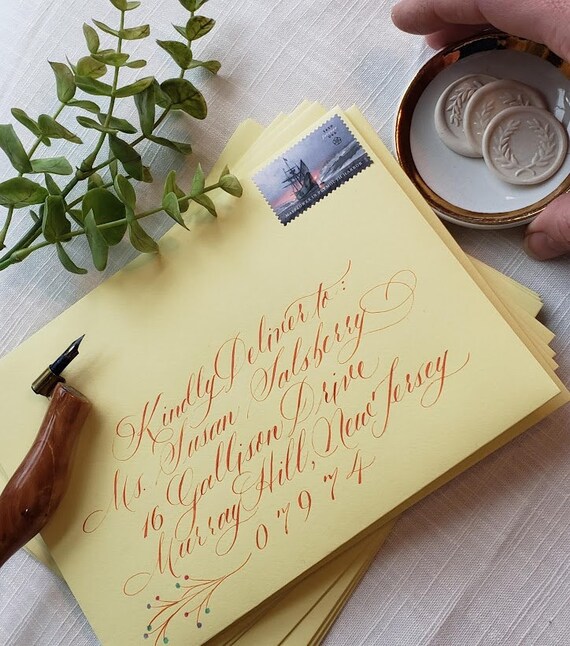 Kindly Deliver to:
Ms. Susan Salsberry
16 Gallison Drive
Murray Hill, New Jersey
07974